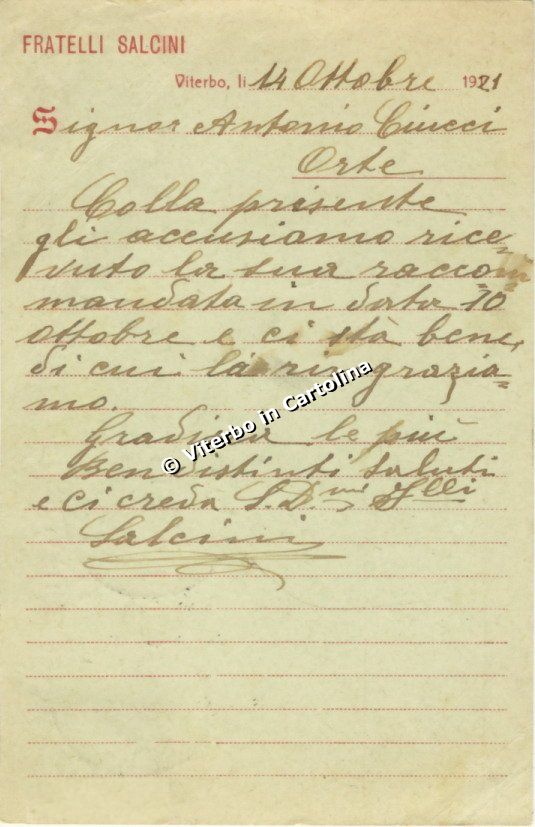 FRATELLI SALCINI
Viterbo, li 14 Ottobre 1921
Signor Antonio Ciucci
Orte
Colla presente
gli accusiamo rice-
vuto la sua racco-
mandata in data 10
ottobre e ci stà bene,
di cui la ringrazia-
mo.
Gradisca le più
Ben distinti saluti
e ci creda S. D.mi Flli
Salcini
© Viterbo in Cartolina